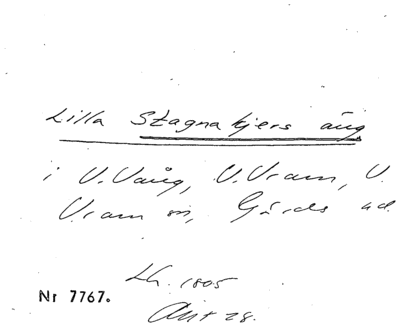 Lilla Stagnakjers äng
i V. Vång, V. Vram, V.
Vram sn, Gärds hd.
Lh. 1805
Nr 7767.
Akt 28.